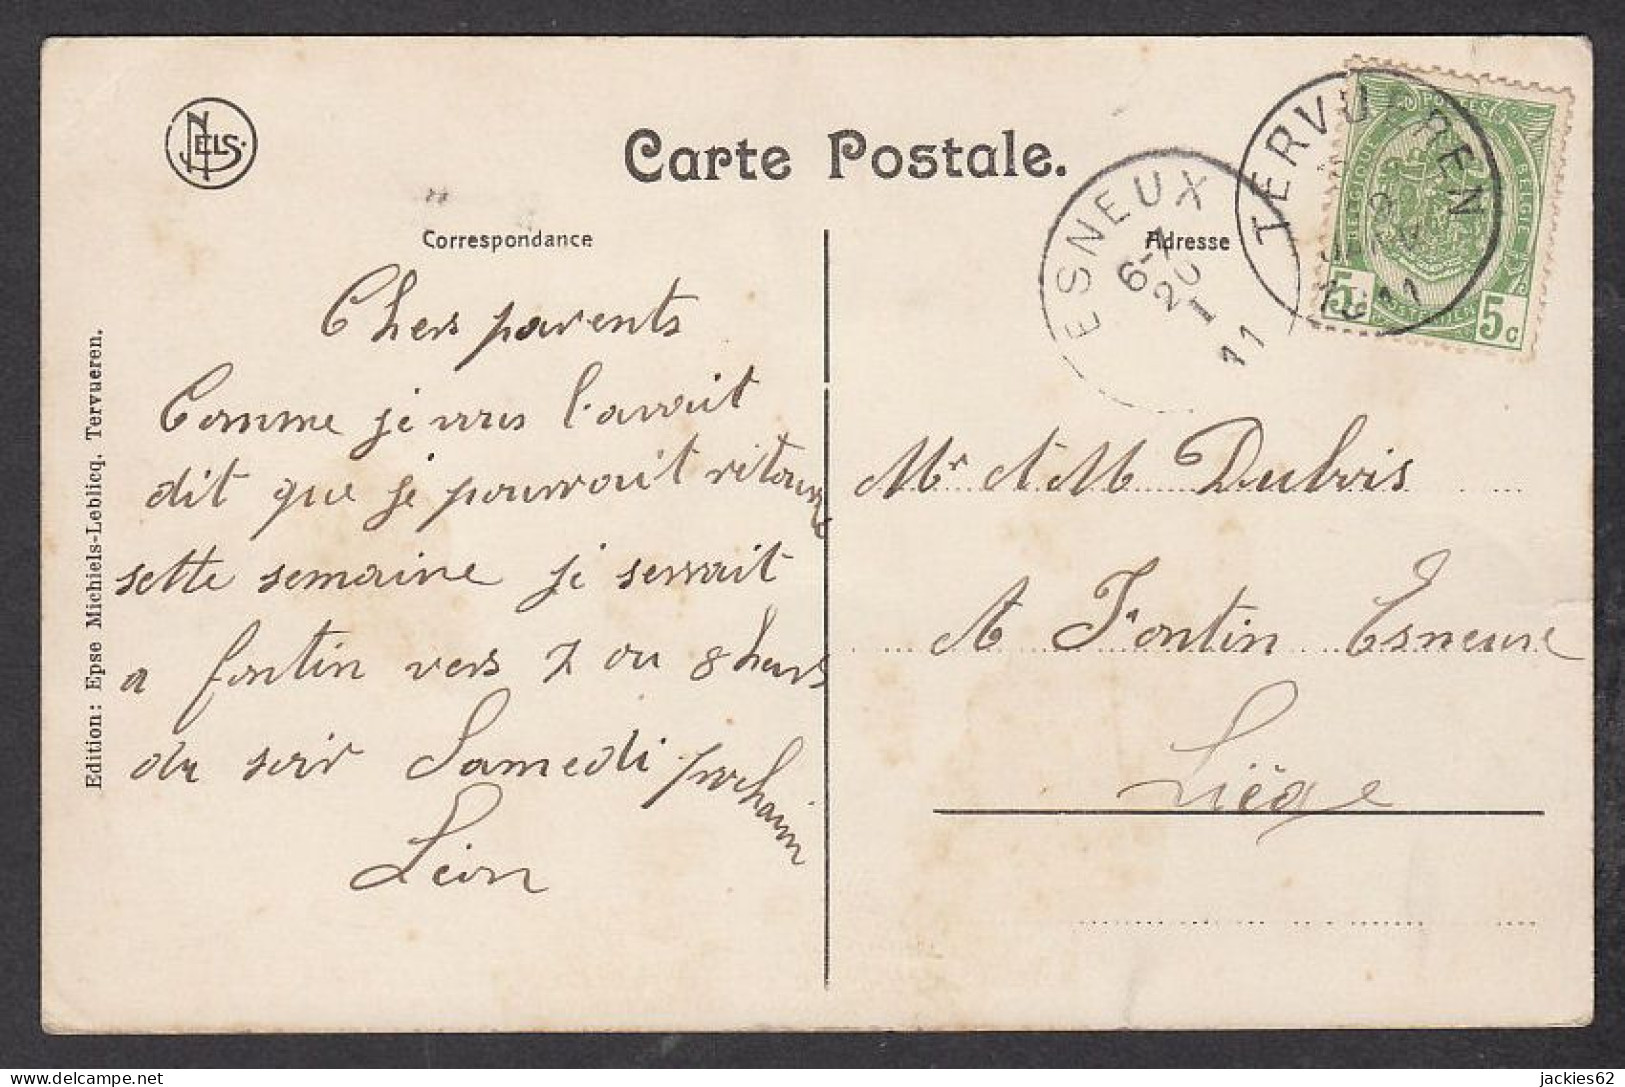 NELS.
Carte Postale.
Correspondance
Adresse
ESNEUX
6-7
20
I
11
TERVUEREN
JANV
1911
POSTES
BELGIQUE
BELGIE
5c
Chers parents
Comme je vous l'avait
dit que je pourrait retourn
sette semaine je serrait
a fontin vers 7 ou 8 heurs
du soir Samedi prochain
Léon
Mr A M Dubois
A Fontin Esneux
Liège
Edition: Epse Michiels-Leblicq, Tervueren.
jackies62